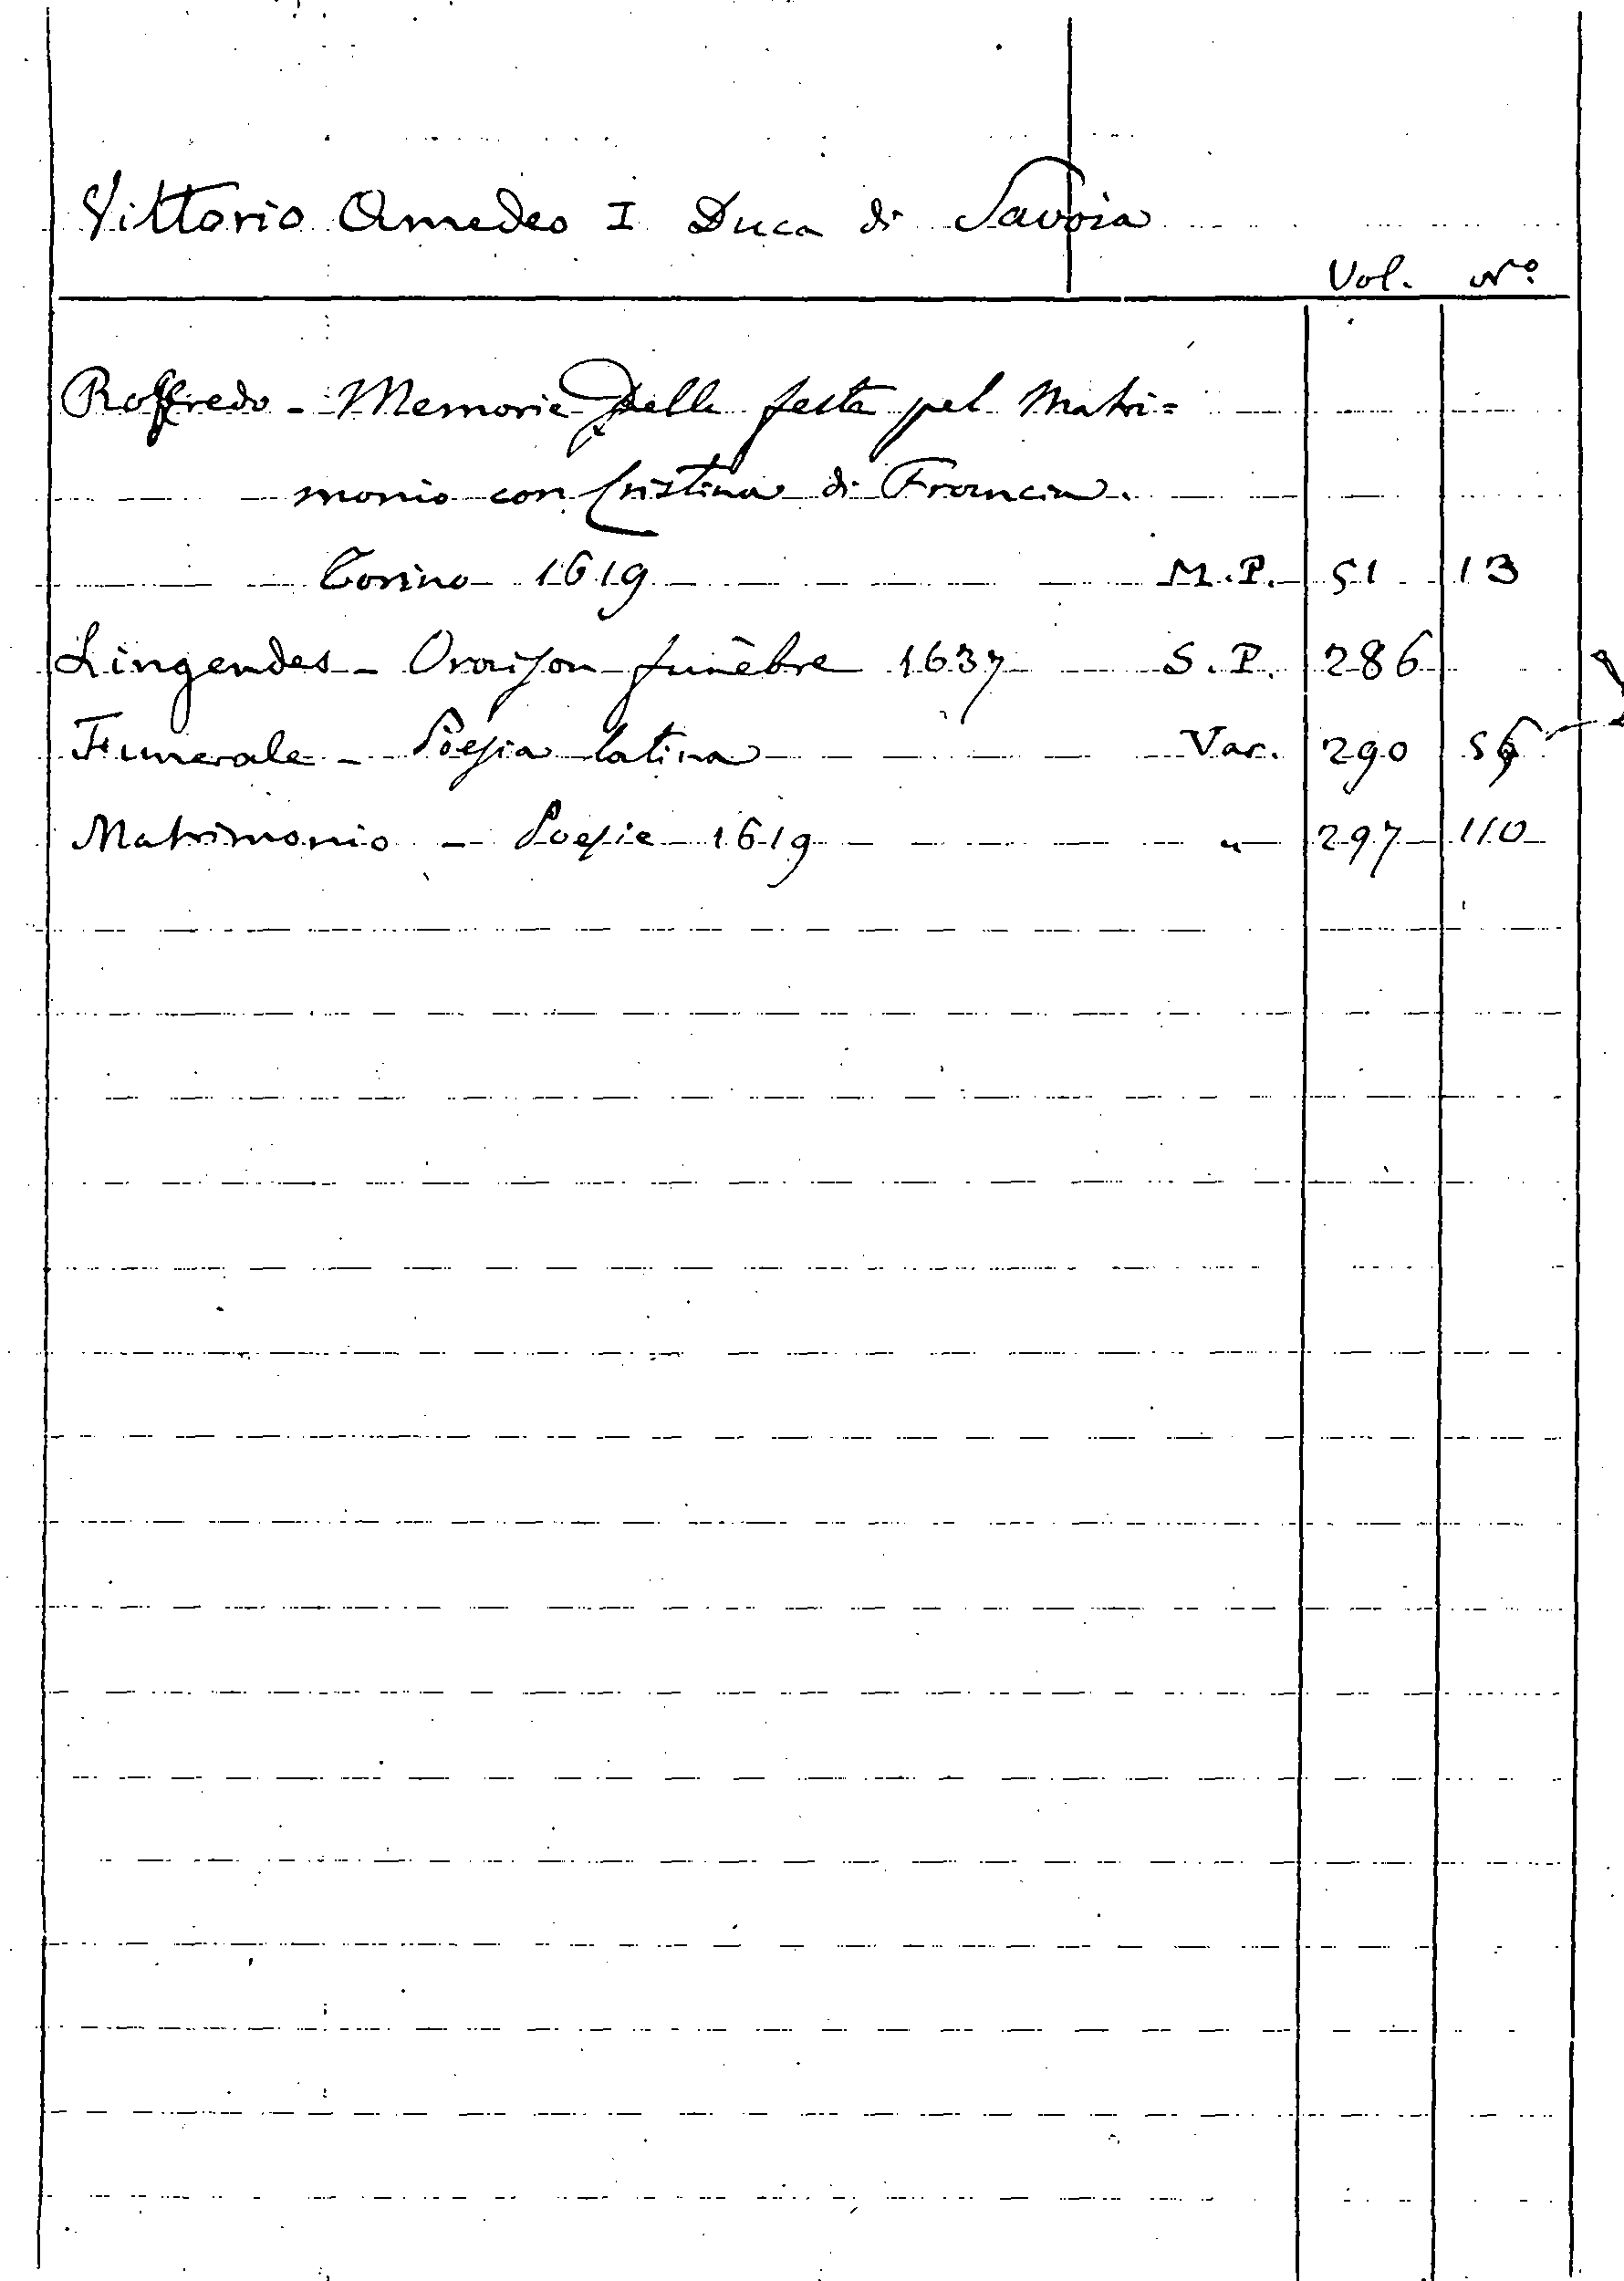 Vittorio Amedeo I Duca di Savoia
Vol. Nº
Roffredo - Memorie delle feste pel Matri=
monio con Cristina di Francia.
Torino 1619 M.P. 51 13
Lingendes - Oraison funèbre 1637 S.P. 286
Funerale - Poesia latina Var. 290
Matrimonio - Poesie 1619 " 297 110